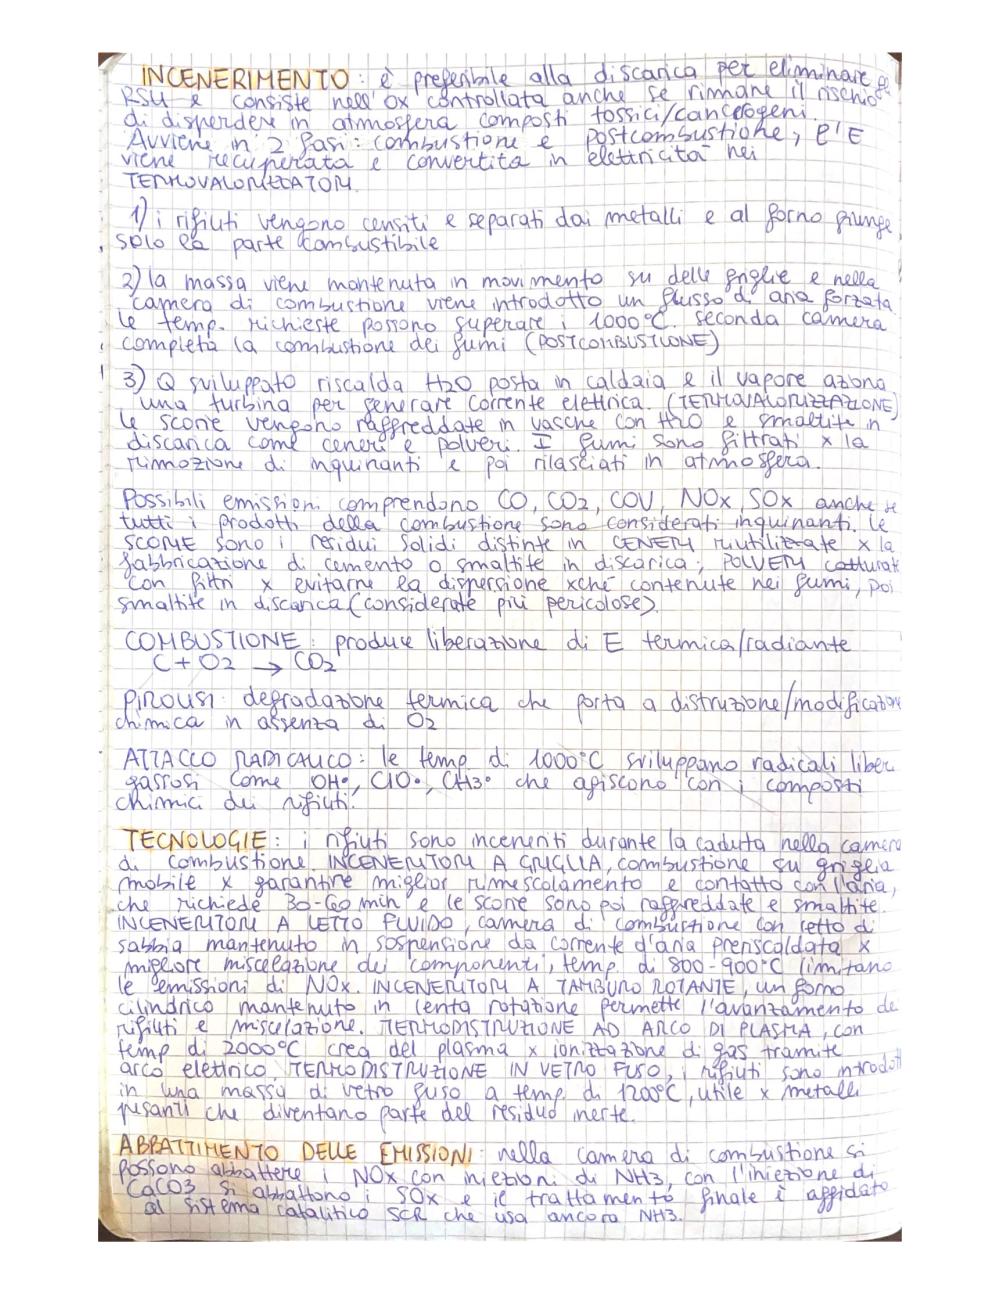 INCENERIMENTO : è preferibile alla discarica per eliminare gli
RSU e consiste nell'Ox controllata anche se rimane il rischio
di disperdere in atmosfera composti tossici/cancerogeni.
Avviene in 2 fasi : combustione e postcombustione, l'E
viene recuperata e convertita in elettricità nei
TERMOVALORIZZATORI.
1) i rifiuti vengono censiti e separati dai metalli e al forno giunge
solo la parte combustibile
2) la massa viene mantenuta in movimento su delle griglie e nella
camera di combustione viene introdotto un flusso di aria forzata
le temp. richieste possono superare i 1000°C. seconda camera
completa la combustione dei fumi (POSTCOMBUSTIONE)
3) Q sviluppato riscalda H2O posta in caldaia e il vapore aziona
una turbina per generare corrente elettrica. (TERMOVALORIZZAZIONE)
le scorie vengono raffreddate in vasche con H2O e smaltite in
discarica come ceneri e polveri. I fumi sono filtrati x la
rimozione di inquinanti e poi rilasciati in atmosfera.
Possibili emissioni comprendono CO, CO2, COV, NOx, SOx anche se
tutti i prodotti della combustione sono considerati inquinanti. le
SCORIE sono i residui solidi distinte in CENERI riutilizzate x la
fabbricazione di cemento o smaltite in discarica; POLVERI catturate
con filtri x evitarne la dispersione xché contenute nei fumi, poi
smaltite in discarica (considerate più pericolose).
COMBUSTIONE : produce liberazione di E termica/radiante
C + O2 → CO2
PIROLISI : degradazione termica che porta a distruzione/modificazione
chimica in assenza di O2
ATTACCO RADICALICO : le temp di 1000°C sviluppano radicali liberi
gassosi come OH•, ClO•, CH3• che agiscono con i composti
chimici dei rifiuti.
TECNOLOGIE : i rifiuti sono inceneriti durante la caduta nella camera
di combustione. INCENERITORI A GRIGLIA, combustione su griglia
mobile x garantire miglior rimescolamento e contatto con l'aria,
che richiede 30-60 min e le scorie sono poi raffreddate e smaltite.
INCENERITORI A LETTO FLUIDO, camera di combustione con letto di
sabbia mantenuto in sospensione da corrente d'aria preriscaldata x
migliore miscelazione dei componenti, temp. di 800-900°C limitano
le emissioni di NOx. INCENERITORI A TAMBURO ROTANTE, un forno
cilindrico mantenuto in lenta rotazione permette l'avanzamento dei
rifiuti e miscelazione. TERMODISTRUZIONE AD ARCO DI PLASMA, con
temp di 2000°C crea del plasma x ionizzazione di gas tramite
arco elettrico. TERMODISTRUZIONE IN VETRO FUSO, i rifiuti sono introdotti
in una massa di vetro fuso a temp di 1200°C, utile x metalli
pesanti che diventano parte del residuo inerte.
ABBATTIMENTO DELLE EMISSIONI : nella camera di combustione si
possono abbattere i NOx con iniezioni di NH3, con l'iniezione di
CaCO3 si abbattono i SOx e il trattamento finale è affidato
al sistema catalitico SCR che usa ancora NH3.